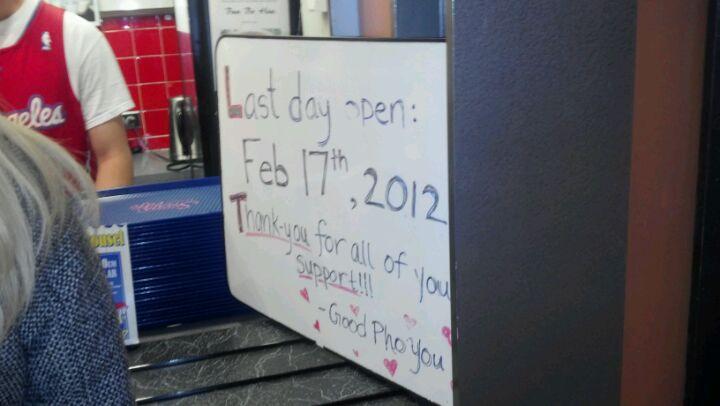 Last day open:
Feb 17th, 2012
Thank-you for all of you
support!!!
- Good Pho You
eles